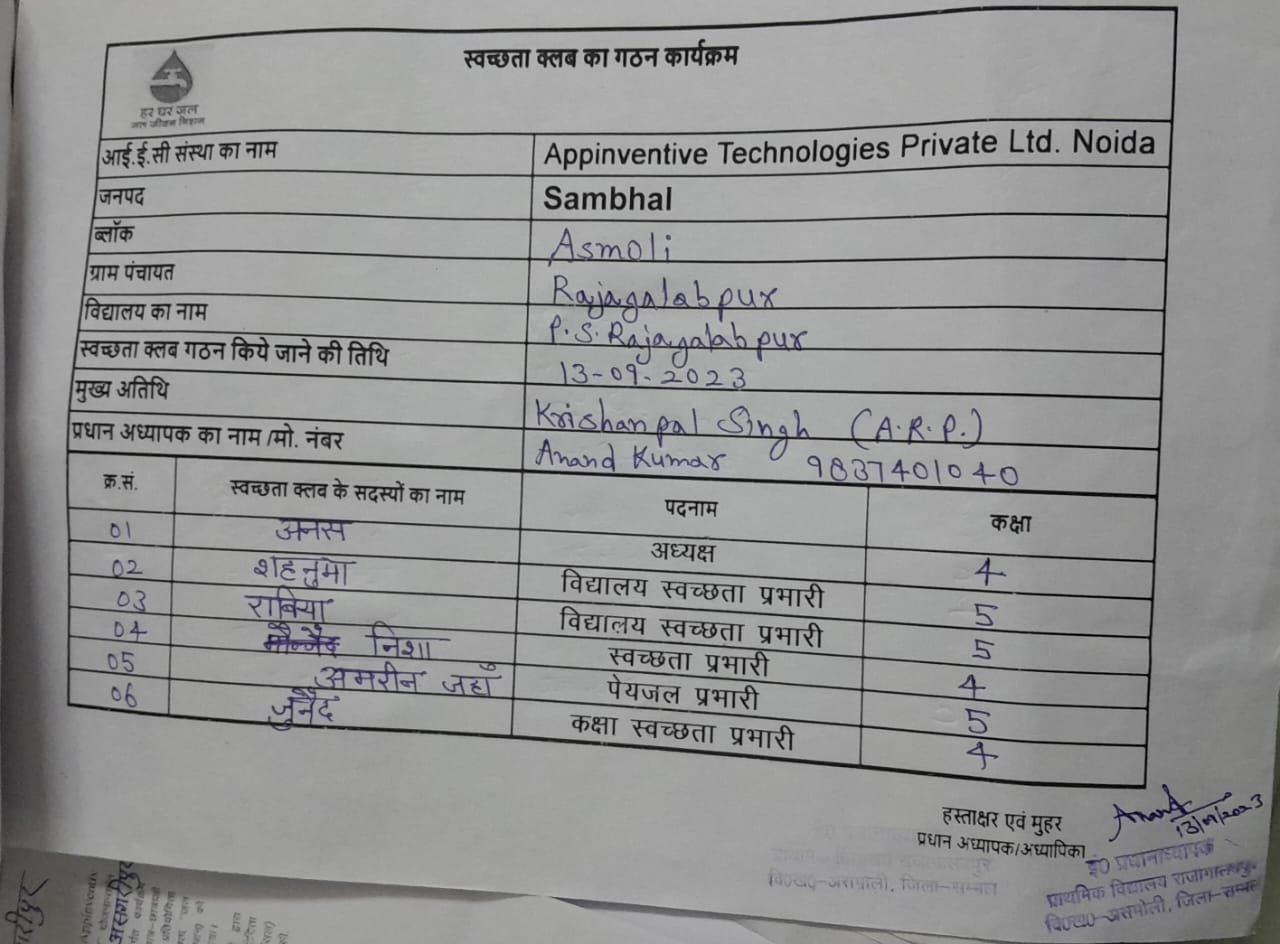 स्वच्छता क्लब का गठन कार्यक्रम
हर घर जल
जल जीवन मिशन
आई.ई.सी संस्था का नाम Appinventive Technologies Private Ltd. Noida
जनपद Sambhal
ब्लॉक Asmoli
ग्राम पंचायत Rajagalabpur
विद्यालय का नाम P.S. Rajagalabpur
स्वच्छता क्लब गठन किये जाने की तिथि 13-09-2023
मुख्य अतिथि Krishanpal Singh (A.R.P.)
प्रधान अध्यापक का नाम /मो. नंबर Anand Kumar 9837401040
क्र.सं. स्वच्छता क्लब के सदस्यों का नाम पदनाम कक्षा
01 अनस अध्यक्ष 4
02 शहनुमा विद्यालय स्वच्छता प्रभारी 5
03 राबिया विद्यालय स्वच्छता प्रभारी 5
04 निशा स्वच्छता प्रभारी 4
05 अमरीन जहाँ पेयजल प्रभारी 5
06 जुनैद कक्षा स्वच्छता प्रभारी 4
हस्ताक्षर एवं मुहर
प्रधान अध्यापक/अध्यापिका
Anand
13/09/2023
इं0 प्रधानाध्यापक
प्राथमिक विद्यालय
वि0ख0-असमोली, जिला-सम्भल
वि0ख0-असमोली, जिला-सम्भल
Appinventiv
असगरीपुर